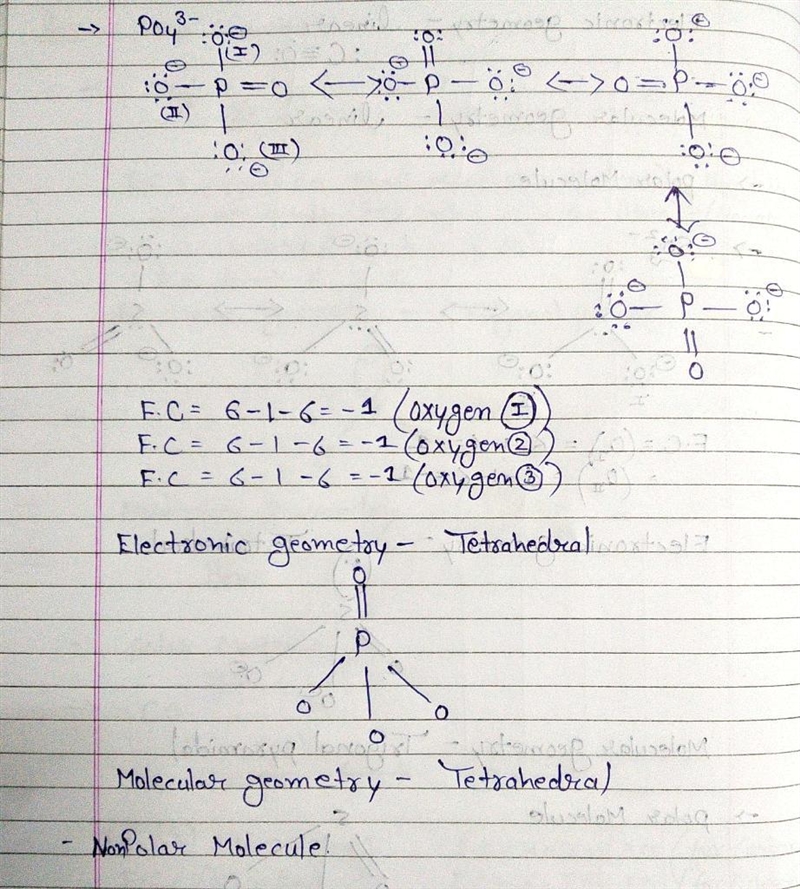 → PO₄³⁻
:Ö:⊖ (I)
:Ö⊖ — P = O ⟷ :Ö⊖ — P — Ö:⊖ ⟷ O = P — Ö:⊖
(II)
:Ö: (III) ⊖ :Ö:⊖ :Ö:⊖
:Ö:⊖
:Ö⊖ — P — Ö:⊖
O
F.C = 6-1-6 = -1 (Oxygen I)
F.C = 6-1-6 = -1 (Oxygen 2)
F.C = 6-1-6 = -1 (Oxygen 3)
Electronic geometry - Tetrahedral
O
P
O O
O
Molecular geometry - Tetrahedral
- NonPolar Molecule